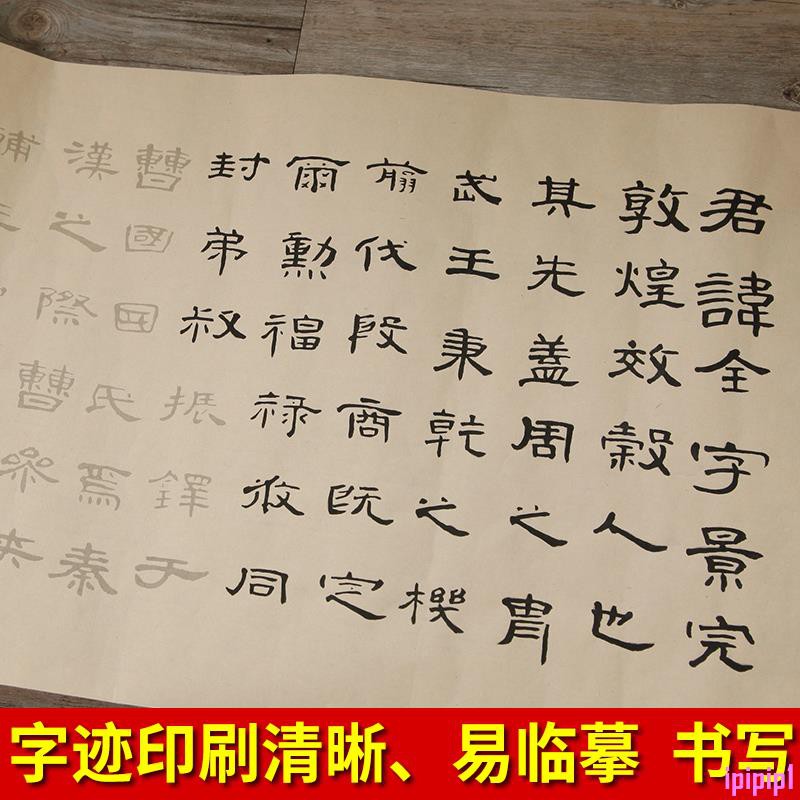 君諱全字景完
敦煌效穀人也
其先盖周之胄
武王秉乾之機
翦伐殷商既定
爾勳福禄攸同
封弟叔振鐸于
曹國因氏焉秦
漢之際曹參夾
字迹印刷清晰、易临摹 书写
ipipipl